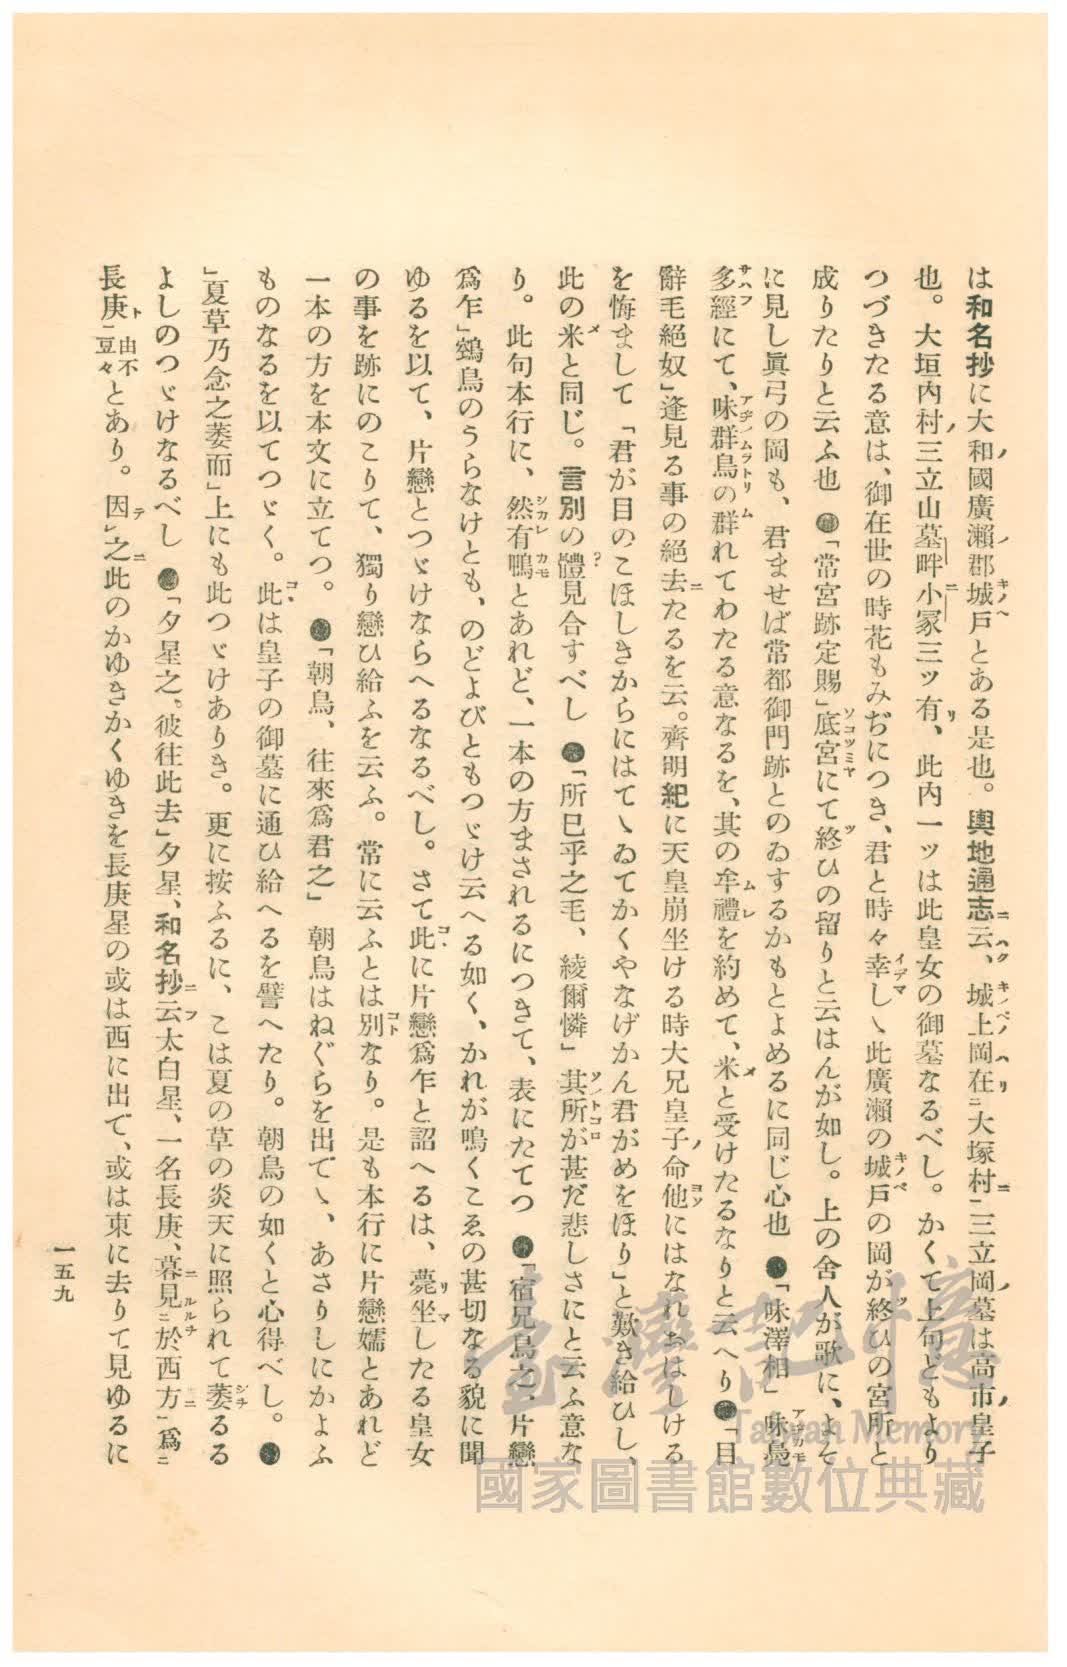 は和名抄に大和國廣瀨郡城戸とある是也。輿地通志云、城上岡在二大塚村一三立岡墓は高市皇子
也。大垣内村三立山墓畔小冢三ッ有、此内一ッは此皇女の御墓なるべし。かくて上句どもより
つづきたる意は、御在世の時花もみぢにつき、君と時々幸しゝ此廣瀨の城戸の岡が終ひの宮所と
成りたりと云ふ也●「常宮跡定賜」底宮にて終ひの留りと云はんが如し。上の舍人が歌に、よそ
に見し眞弓の岡も、君ませば常都御門跡とのゐするかもとよめるに同じ心也●「味澤相」味鳧
多經にて、味群鳥の群れてわたる意なるを、其の牟禮を約めて、米と受けたるなりと云へり●「目
辭毛絶奴」逢見る事の絶去たるを云。齊明紀に天皇崩坐ける時大兄皇子命他にはなれおはしける
を悔まして「君が目のこほしきからにはてゝゐてかくやなげかん君がめをほり」と歎き給ひし、
此の米と同じ。言別の體見合すべし●「所巳乎之毛、綾爾憐」其所が甚だ悲しさにと云ふ意な
り。此句本行に、然有鴨とあれど、一本の方まされるにつきて、表にたてつ●「宿兄鳥之、片戀
爲乍」鵼鳥のうらなけとも、のどよびともつゞけ云へる如く、かれが鳴くこゑの甚切なる貌に聞
ゆるを以て、片戀とつゞけならへるなるべし。さて此に片戀爲乍と詔へるは、薨坐したる皇女
の事を跡にのこりて、獨り戀ひ給ふを云ふ。常に云ふとは別なり。是も本行に片戀嬬とあれど
一本の方を本文に立てつ。●「朝鳥、往來爲君之」朝鳥はねぐらを出てゝ、あさりしにかよふ
ものなるを以てつゞく。此は皇子の御墓に通ひ給へるを譬へたり。朝鳥の如くと心得べし。●
」夏草乃念之萎而」上にも此つゞけありき。更に按ふるに、こは夏の草の炎天に照られて萎るる
よしのつゞけなるべし●「夕星之。彼往此去」夕星、和名抄云太白星、一名長庚、暮見二於西方一爲二
長庚一由不豆々とあり。因レ之此のかゆきかくゆきを長庚星の或は西に出で、或は東に去りて見ゆるに
一五九
臺灣記憶
Taiwan Memory
國家圖書館數位典藏